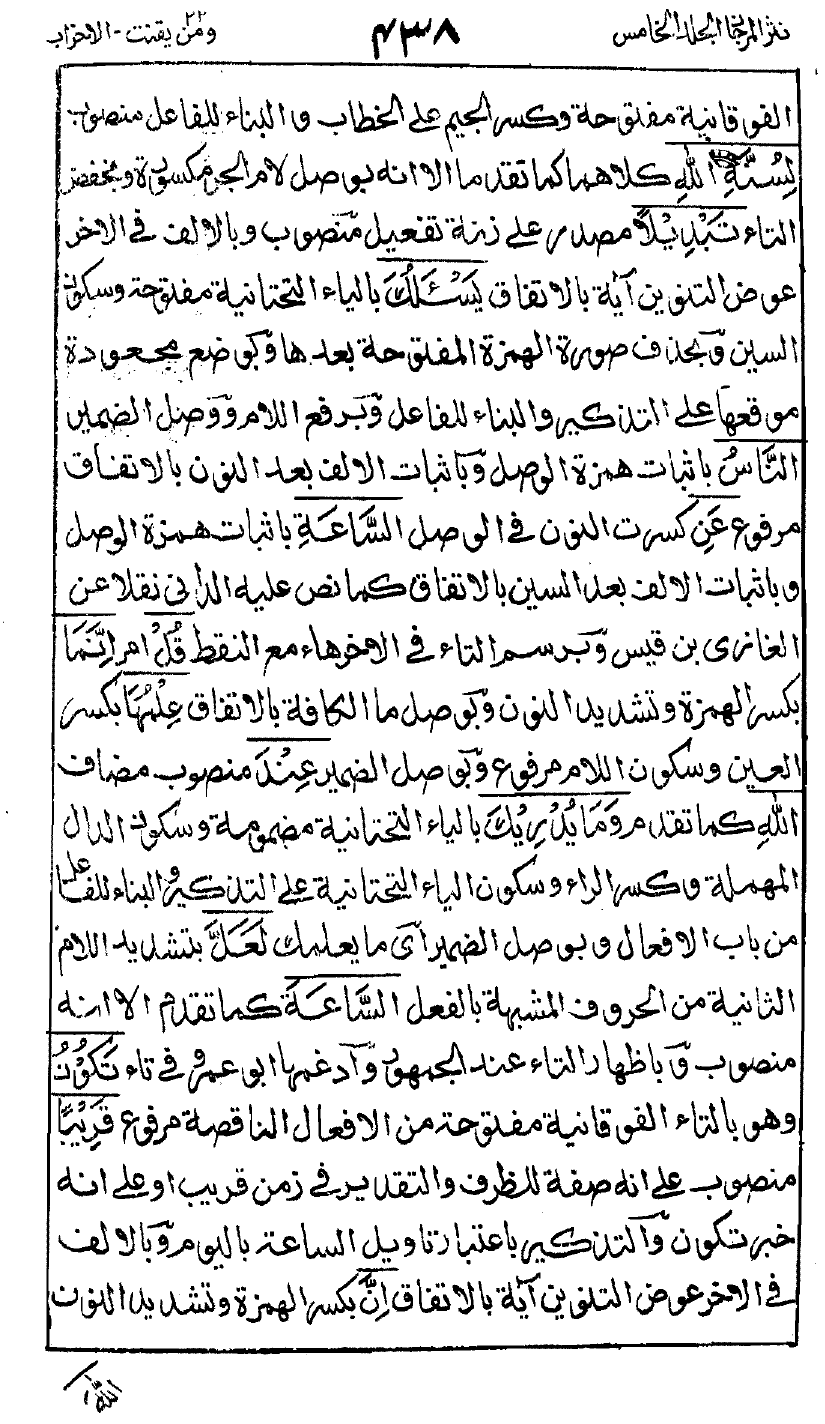 نثر المرجان المجلد الخامس ٤٣٨ ومن يقنت ٢٢ - الاحزاب
الفوقانية مفتوحة وكسر الجيم على الخطاب والبناء للفاعل منصوب
لِسُنَّةِ اللّٰهِ كلاهما كما تقدما الا انه بوصل لام الجر مكسورة وبخفض
التاء تَبْدِيْلًا مصدر على زنة تفعيل منصوب وبالالف فى الاخر
عوض التنوين آية بالاتفاق يَسْـَٔلُكَ بالياء التحتانية مفتوحة وسكون
السين وبحذف صورة الهمزة المفتوحة بعدها وبوضع مجعودة
موقعها على التذكير والبناء للفاعل وبرفع اللام ووصل الضمير
النَّاسُ باثبات همزة الوصل وباثبات الالف بعد النون بالاتفاق
مرفوع عَنِ كسرت النون فى الوصل السَّاعَةِ باثبات همزة الوصل
وباثبات الالف بعد السين بالاتفاق كما نص عليه الدانى نقلا عن
الغازى بن قيس وبرسم التاء فى الاخر هاء مع النقط قُلْ امر اِنَّمَا
بكسر الهمزة وتشديد النون وبوصل ما الكافة بالاتفاق عِلْمُهَا بكسر
العين وسكون اللام مرفوع وبوصل الضمير عِنْدَ منصوب مضاف
اللّٰهِ كما تقدم وَمَا يُدْرِيْكَ بالياء التحتانية مضمومة وسكون الدال
المهملة وكسر الراء وسكون الياء التحتانية على التذكير والبناء للفاعل
من باب الافعال وبوصل الضمير اى ما يعلمك لَعَلَّ بتشديد اللام
الثانية من الحروف المشبهة بالفعل السَّاعَةَ كما تقدم الا انه
منصوب وباظهار التاء عند الجمهور وآدغمها ابو عمرو فى تاء تَكُوْنُ
وهو بالتاء الفوقانية مفتوحة من الافعال الناقصة مرفوع قَرِيْبًا
منصوب على انه صفة للظرف والتقدير فى زمن قريب او على انه
خبر تكون والتذكير باعتبار تاويل الساعة باليوم وبالالف
فى الاخر عوض التنوين آية بالاتفاق اِنَّ بكسر الهمزة وتشديد النون
اللّٰه